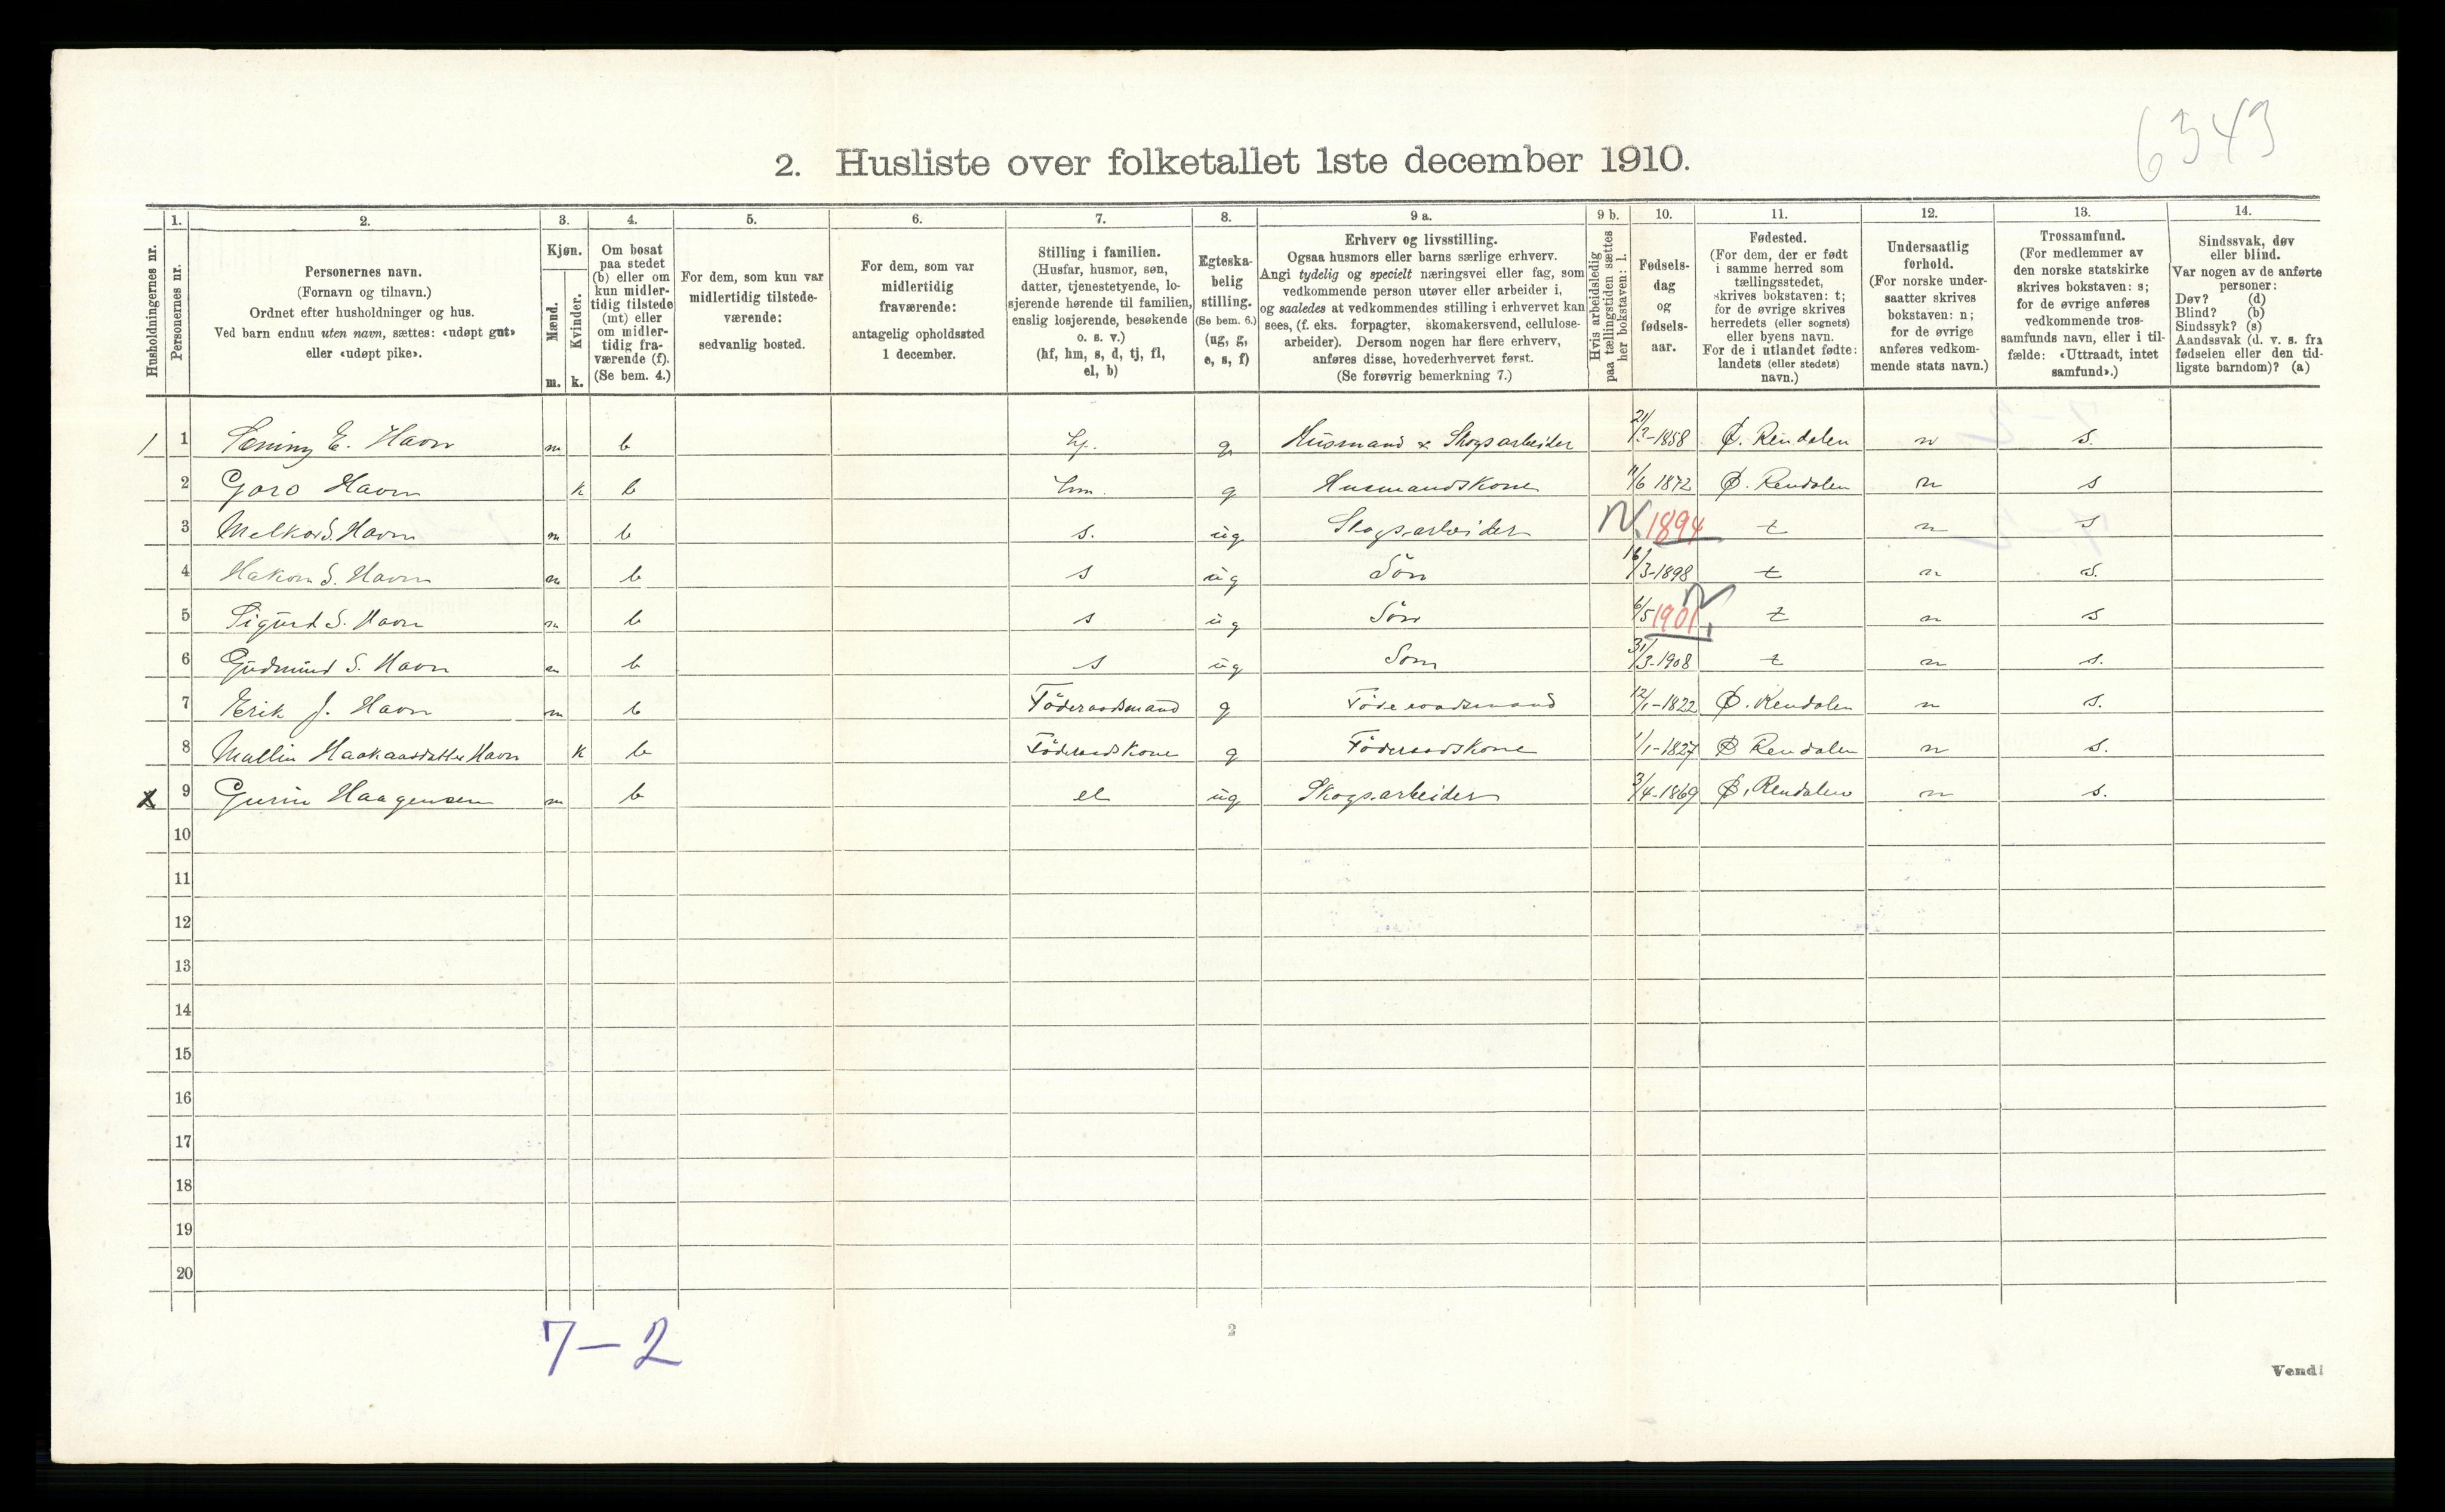 6343
2. Husliste over folketallet 1ste december 1910.
Husholdningernes nr.
1. Personernes nr.
2. Personernes navn.
(Fornavn og tilnavn.)
Ordnet efter husholdninger og hus.
Ved barn endnu uten navn, sættes: «udøpt gut»
eller «udøpt pike».
3. Kjøn.
Mænd. m.
Kvinder. k.
4. Om bosat
paa stedet
(b) eller om
kun midler-
tidig tilstede
(mt) eller
om midler-
tidig fra-
værende (f).
(Se bem. 4.)
5. For dem, som kun var
midlertidig tilstede-
værende:
sedvanlig bosted.
6. For dem, som var
midlertidig
fraværende:
antagelig opholdssted
1 december.
7. Stilling i familien.
(Husfar, husmor, søn,
datter, tjenestetyende, lo-
sjerende hørende til familien,
enslig losjerende, besøkende
o. s. v.)
(hf, hm, s, d, tj, fl,
el, b)
8. Egteska-
belig
stilling.
(Se bem. 6.)
(ug, g,
e, s, f)
9 a. Erhverv og livsstilling.
Ogsaa husmors eller barns særlige erhverv.
Angi tydelig og specielt næringsvei eller fag, som
vedkommende person utøver eller arbeider i,
og saaledes at vedkommendes stilling i erhvervet kan
sees, (f. eks. forpagter, skomakersvend, cellulose-
arbeider). Dersom nogen har flere erhverv,
anføres disse, hovederhvervet først.
(Se forøvrig bemerkning 7.)
9 b. Hvis arbeidsledig
paa tællingstiden sættes
her bokstaven: l.
10. Fødsels-
dag
og
fødsels-
aar.
11. Fødested.
(For dem, der er født
i samme herred som
tællingsstedet,
skrives bokstaven: t;
for de øvrige skrives
herredets (eller sognets)
eller byens navn.
For de i utlandet fødte:
landets (eller stedets)
navn.)
12. Undersaatlig
forhold.
(For norske under-
saatter skrives
bokstaven: n;
for de øvrige
anføres vedkom-
mende stats navn.)
13. Trossamfund.
(For medlemmer av
den norske statskirke
skrives bokstaven: s;
for de øvrige anføres
vedkommende tros-
samfunds navn, eller i til-
fælde: «Uttraadt, intet
samfund».)
14. Sindssvak, døv
eller blind.
Var nogen av de anførte
personer:
Døv? (d)
Blind? (b)
Sindssyk? (s)
Aandssvak (d. v. s. fra
fødselen eller den tid-
ligste barndom)? (a)
1 1 E. Havn m b hf. g Husmand & Skogsarbeider -1858 Ø. Rendalen n s.
2 Goro Havn k b hm. g Husmandskone 11/6 1872 Ø. Rendalen n s
3 Melkor S. Havn m b s. ug Skogsarbeider 1894 t n s
4 Hakon S. Havn m b s ug Sön 16/3-1898 t n s.
5 Sigurd S. Havn m b s ug Sön 6/5 1901 t n s
6 Gudmund S. Havn m b s ug Sön 31/3-1908 t n s.
7 Erik J. Havn m b Föderaadsmand g Föderaadsmand 12/1-1822 Ø. Rendalen n s.
8 Mallin Haakaasdatter Havn k b Föderaadskone g Föderaadskone 1/1-1827 Ø Rendalen n s.
x 9 Gurin Haagensen m b el ug Skogsarbeider 3/4-1869 Ø. Rendalen n s.
10
11
12
13
14
15
16
17
18
19
20
7-2
2
Vend!